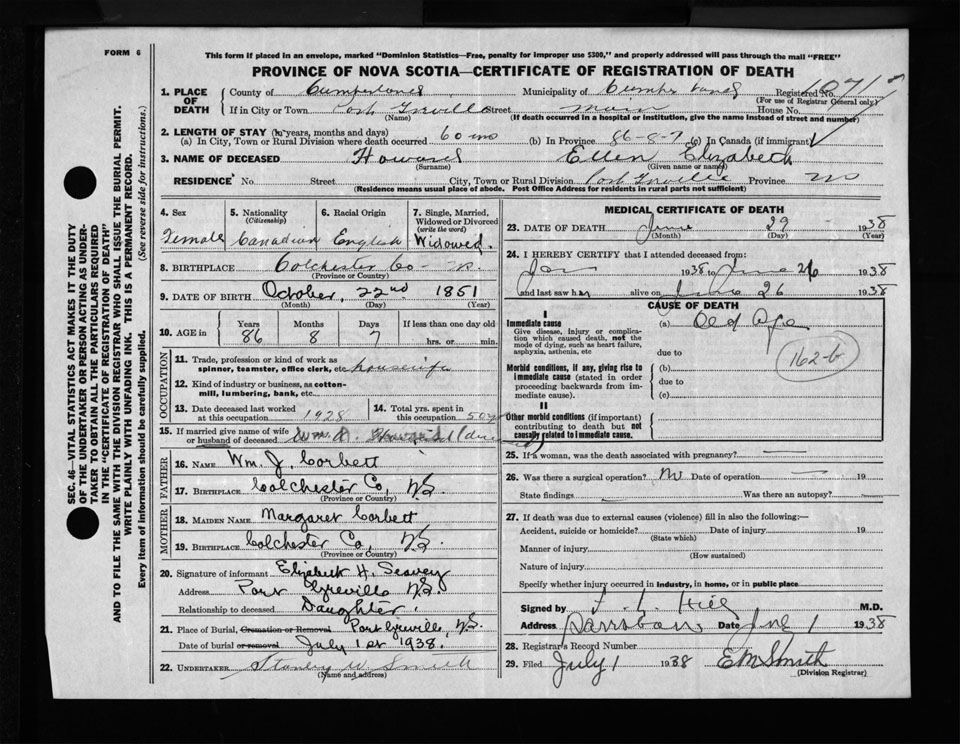 FORM 6
This form if placed in an envelope, marked "Dominion Statistics—Free, penalty for improper use $300," and properly addressed will pass through the mail "FREE"
PROVINCE OF NOVA SCOTIA—CERTIFICATE OF REGISTRATION OF DEATH
1. PLACE OF DEATH
County of Cumberland Municipality of Cumberland Registered No.
(For use of Registrar General only)
If in City or Town Port Greville Street Main House No.
(Name) (If death occurred in a hospital or institution, give the name instead of street and number)
2. LENGTH OF STAY (in years, months and days)
(a) In City, Town or Rural Division where death occurred (b) In Province 86-8-7 (c) In Canada (if immigrant)
3. NAME OF DECEASED Howard Ellen Elizabeth
(Surname) (Given name or names)
RESIDENCE No. Street City, Town or Rural Division Port Greville Province NS
(Residence means usual place of abode. Post Office Address for residents in rural parts not sufficient)
4. Sex
Female
5. Nationality
(Citizenship)
Canadian
6. Racial Origin
English
7. Single, Married, Widowed or Divorced
(write the word)
Widowed.
8. BIRTHPLACE Colchester Co
(Province or Country)
9. DATE OF BIRTH October, 22nd 1851
(Month) (Day) (Year)
10. AGE in
Years Months Days If less than one day
86 8 7 hrs. or min.
OCCUPATION
11. Trade, profession or kind of work as spinner, teamster, office clerk, etc. housewife
12. Kind of industry or business, as cotton-mill, lumbering, bank, etc.
13. Date deceased last worked at this occupation 1928
14. Total yrs. spent in this occupation
15. If married give name of wife or husband of deceased Wm. Howard
FATHER
16. NAME Wm. J. Corbett
17. BIRTHPLACE Colchester Co, N.S.
(Province or Country)
MOTHER
18. MAIDEN NAME Margaret Corbett
19. BIRTHPLACE Colchester Co, N.S.
(Province or Country)
20. Signature of informant Elizabeth H. Seavey
Address Port Greville N.S.
Relationship to deceased Daughter.
21. Place of Burial, Cremation or Removal Port Greville, N.S.
Date of burial or removal July 1st 1938.
22. UNDERTAKER Stanley W. Smith
(Name and address)
MEDICAL CERTIFICATE OF DEATH
23. DATE OF DEATH June 29 1938
(Month) (Day) (Year)
24. I HEREBY CERTIFY that I attended deceased from:
Jan 1938 to June 26 1938
and last saw her alive on June 26 1938
CAUSE OF DEATH
I
Immediate cause (a) Old Age
Give disease, injury or complication which caused death, not the mode of dying, such as heart failure, asphyxia, asthenia, etc
due to
162-b
Morbid conditions, if any, giving rise to immediate cause (stated in order proceeding backwards from immediate cause).
(b)
due to
(c)
II
Other morbid conditions (if important) contributing to death but not causally related to immediate cause.
25. If a woman, was the death associated with pregnancy?
26. Was there a surgical operation? No Date of operation 19
State findings Was there an autopsy?
27. If death was due to external causes (violence) fill in also the following:—
Accident, suicide or homicide? Date of injury 19
(State which)
Manner of injury
(How sustained)
Nature of injury
Specify whether injury occurred in industry, in home, or in public place
Signed by Hill M.D.
Address Parrsboro Date July 1 1938
28. Registrar's Record Number
29. Filed July 1 1938 E M Smith
(Division Registrar)
SEC. 46—VITAL STATISTICS ACT MAKES IT THE DUTY
OF THE UNDERTAKER OR PERSON ACTING AS UNDERTAKER TO OBTAIN ALL THE PARTICULARS REQUIRED
IN THE "CERTIFICATE OF REGISTRATION OF DEATH"
AND TO FILE THE SAME WITH THE DIVISION REGISTRAR WHO SHALL ISSUE THE BURIAL PERMIT.
WRITE PLAINLY WITH UNFADING INK. THIS IS A PERMANENT RECORD.
Every item of Information should be carefully supplied. (See reverse side for instructions.)